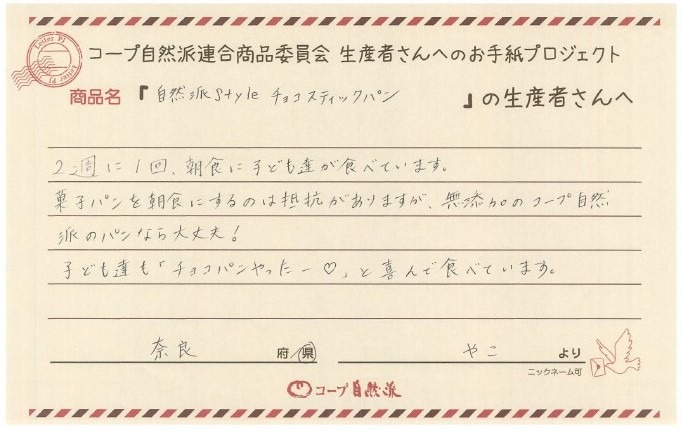 Letter PJ
Letter PJ
コープ自然派連合商品委員会 生産者さんへのお手紙プロジェクト
商品名『自然派Style チョコスティックパン』の生産者さんへ
2週に1回、朝食に子ども達が食べています。
菓子パンを朝食にするのは抵抗がありますが、無添加のコープ自然
派のパンなら大丈夫!
子ども達も「チョコパンやったー♡」と喜んで食べています。
奈良 府・県 やこ より
ニックネーム可
コープ自然派